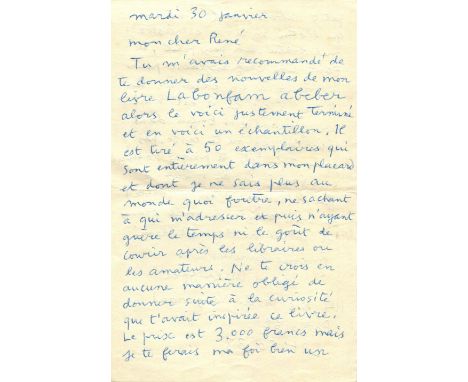 mardi 30 janvier
mon cher René
Tu m'avais recommandé de
te donner des nouvelles de mon
livre Labonfam abeber
alors le voici justement terminé
et en voici un échantillon. Il
est tiré à 50 exemplaires qui
sont entièrement dans mon placard
et dont je ne sais plus au
monde quoi foutre, ne sachant
à qui m'adresser et puis n'ayant
guère le temps ni le goût de
courir après les libraires ou
les amateurs. Ne te crois en
aucune manière obligé de
donner suite à la curiosité
que t'avait inspirée ce livre.
Le prix est 3.000 francs mais
je te ferais ma foi bien un